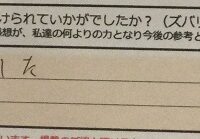 けられていかがでしたか？（ズバリ
感想が、私達の何よりの力となり今後の参考と
した